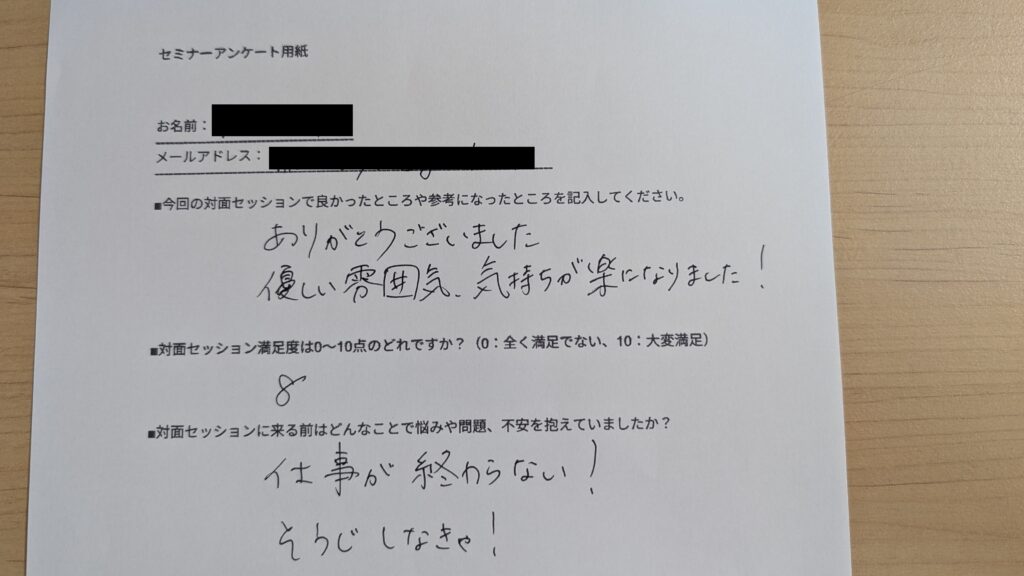 セミナーアンケート用紙
お名前：
メールアドレス：
■今回の対面セッションで良かったところや参考になったところを記入してください。
ありがとうございました
優しい雰囲気、気持ちが楽になりました！
■対面セッション満足度は0〜10点のどれですか？（0：全く満足でない、10：大変満足）
8
■対面セッションに来る前はどんなことで悩みや問題、不安を抱えていましたか？
仕事が終わらない！
そうじしなきゃ！